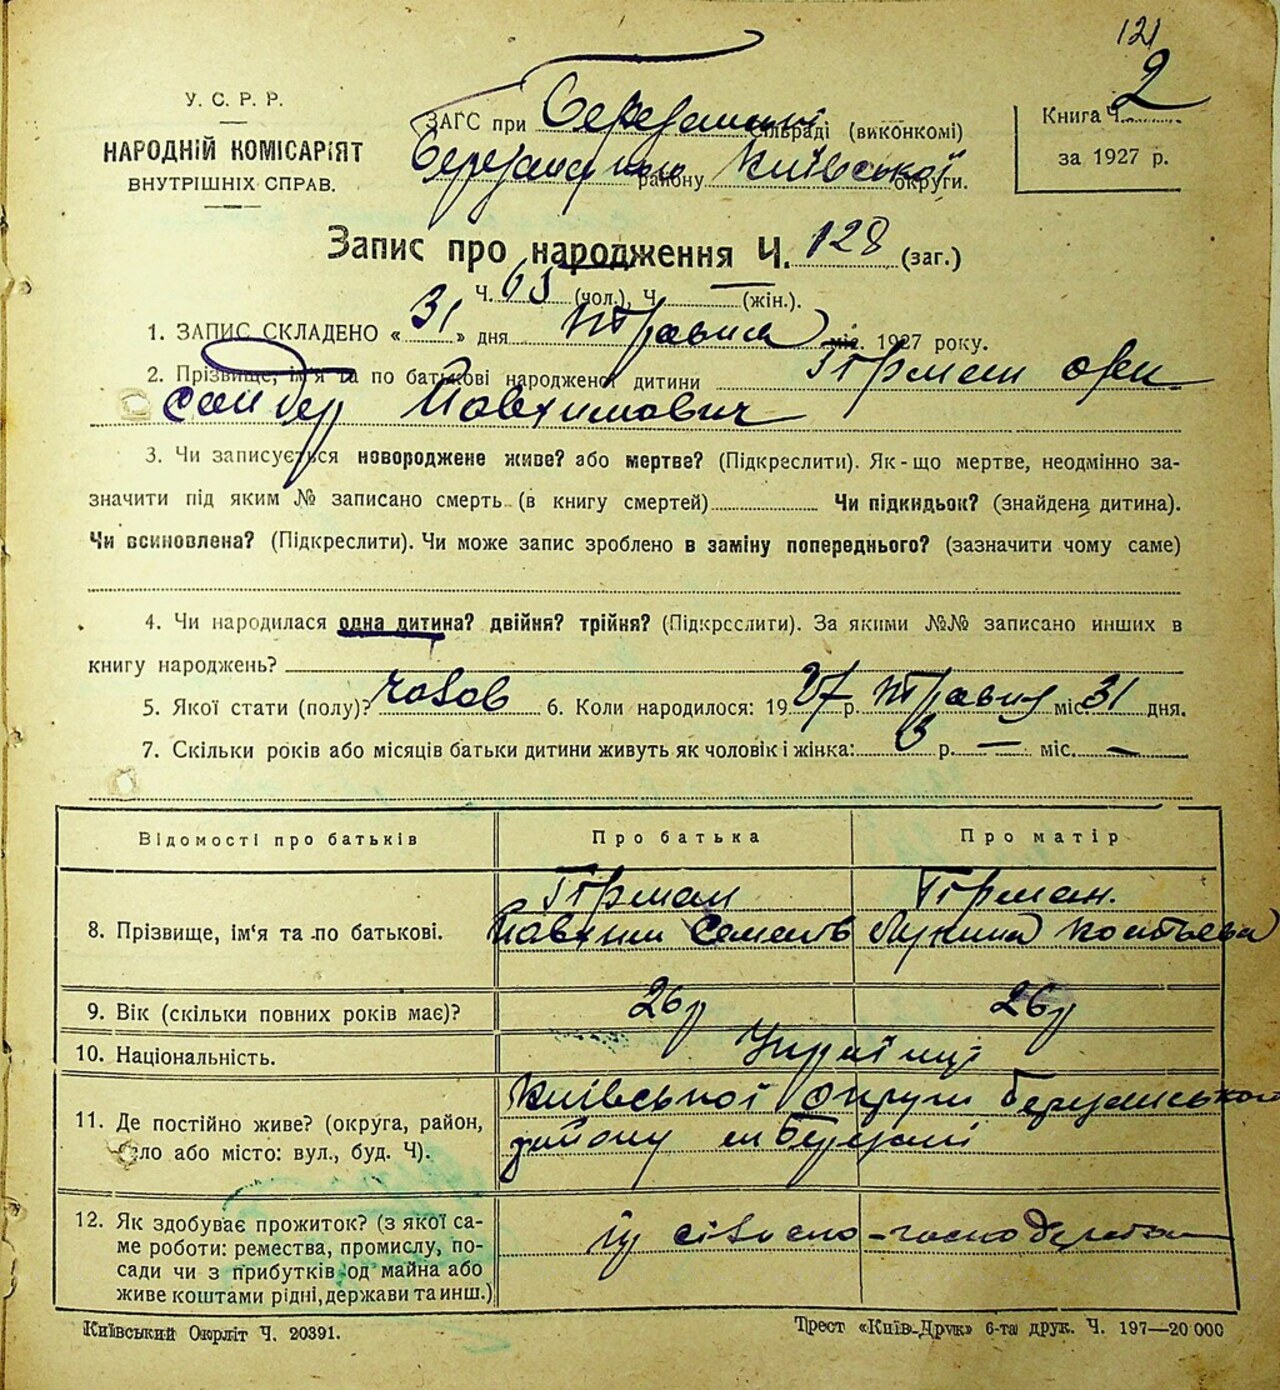 121
У. С. Р. Р.
НАРОДНІЙ КОМІСАРІЯТ
ВНУТРІШНІХ СПРАВ.
ЗАГС при Березанській сільраді (виконкомі)
Березанського району Київської округи.
Книга Ч. 2
за 1927 р.
Запис про народження Ч. 128 (заг.)
Ч. 65 (чол.), Ч. — (жін.).
1. ЗАПИС СКЛАДЕНО « 31 » дня травня міс. 1927 року.
2. Прізвище, ім'я та по батькові народженої дитини Герман Олек
сандер Явхимович
3. Чи записується новороджене живе? або мертве? (Підкреслити). Як-що мертве, неодмінно за-
значити під яким № записано смерть (в книгу смертей) Чи підкидьок? (знайдена дитина).
Чи всиновлена? (Підкреслити). Чи може запис зроблено в заміну попереднього? (зазначити чому саме)
4. Чи народилася одна дитина? двійня? трійня? (Підкреслити). За якими №№ записано инших в
книгу народжень?
5. Якої стати (полу)? чолов 6. Коли народилося: 1927 р. травня міс. 31 дня.
7. Скільки років або місяців батьки дитини живуть як чоловік і жінка: 6 р. — міс. —
Відомості про батьків Про батька Про матір
8. Прізвище, ім'я та по батькові. Герман Герман.
Явхим Семенів Лукина Костьева
9. Вік (скільки повних років має)? 26 р 26 р
10. Національність. Українці
11. Де постійно живе? (округа, район,
село або місто: вул., буд. Ч). Київської округи Березанського
району м Березані
12. Як здобуває прожиток? (з якої са-
ме роботи: ремества, промислу, по-
сади чи з прибутків од майна або
живе коштами рідні, держави та инш.) із сільсько-господарства
Київський Окрліт Ч. 20391.
Трест «Київ-Друк» 6-та друк. Ч. 197—20 000